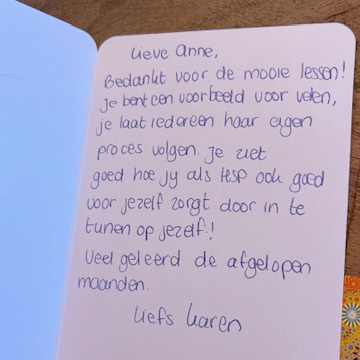 Lieve Anne,
Bedankt voor de mooie lessen!
Je bent een voorbeeld voor velen,
je laat iedereen haar eigen
proces volgen. Je ziet
goed hoe jy als HSP ook goed
voor jezelf zorgt door in te
tunen op jezelf!
Veel geleerd de afgelopen
maanden.
Liefs Karen